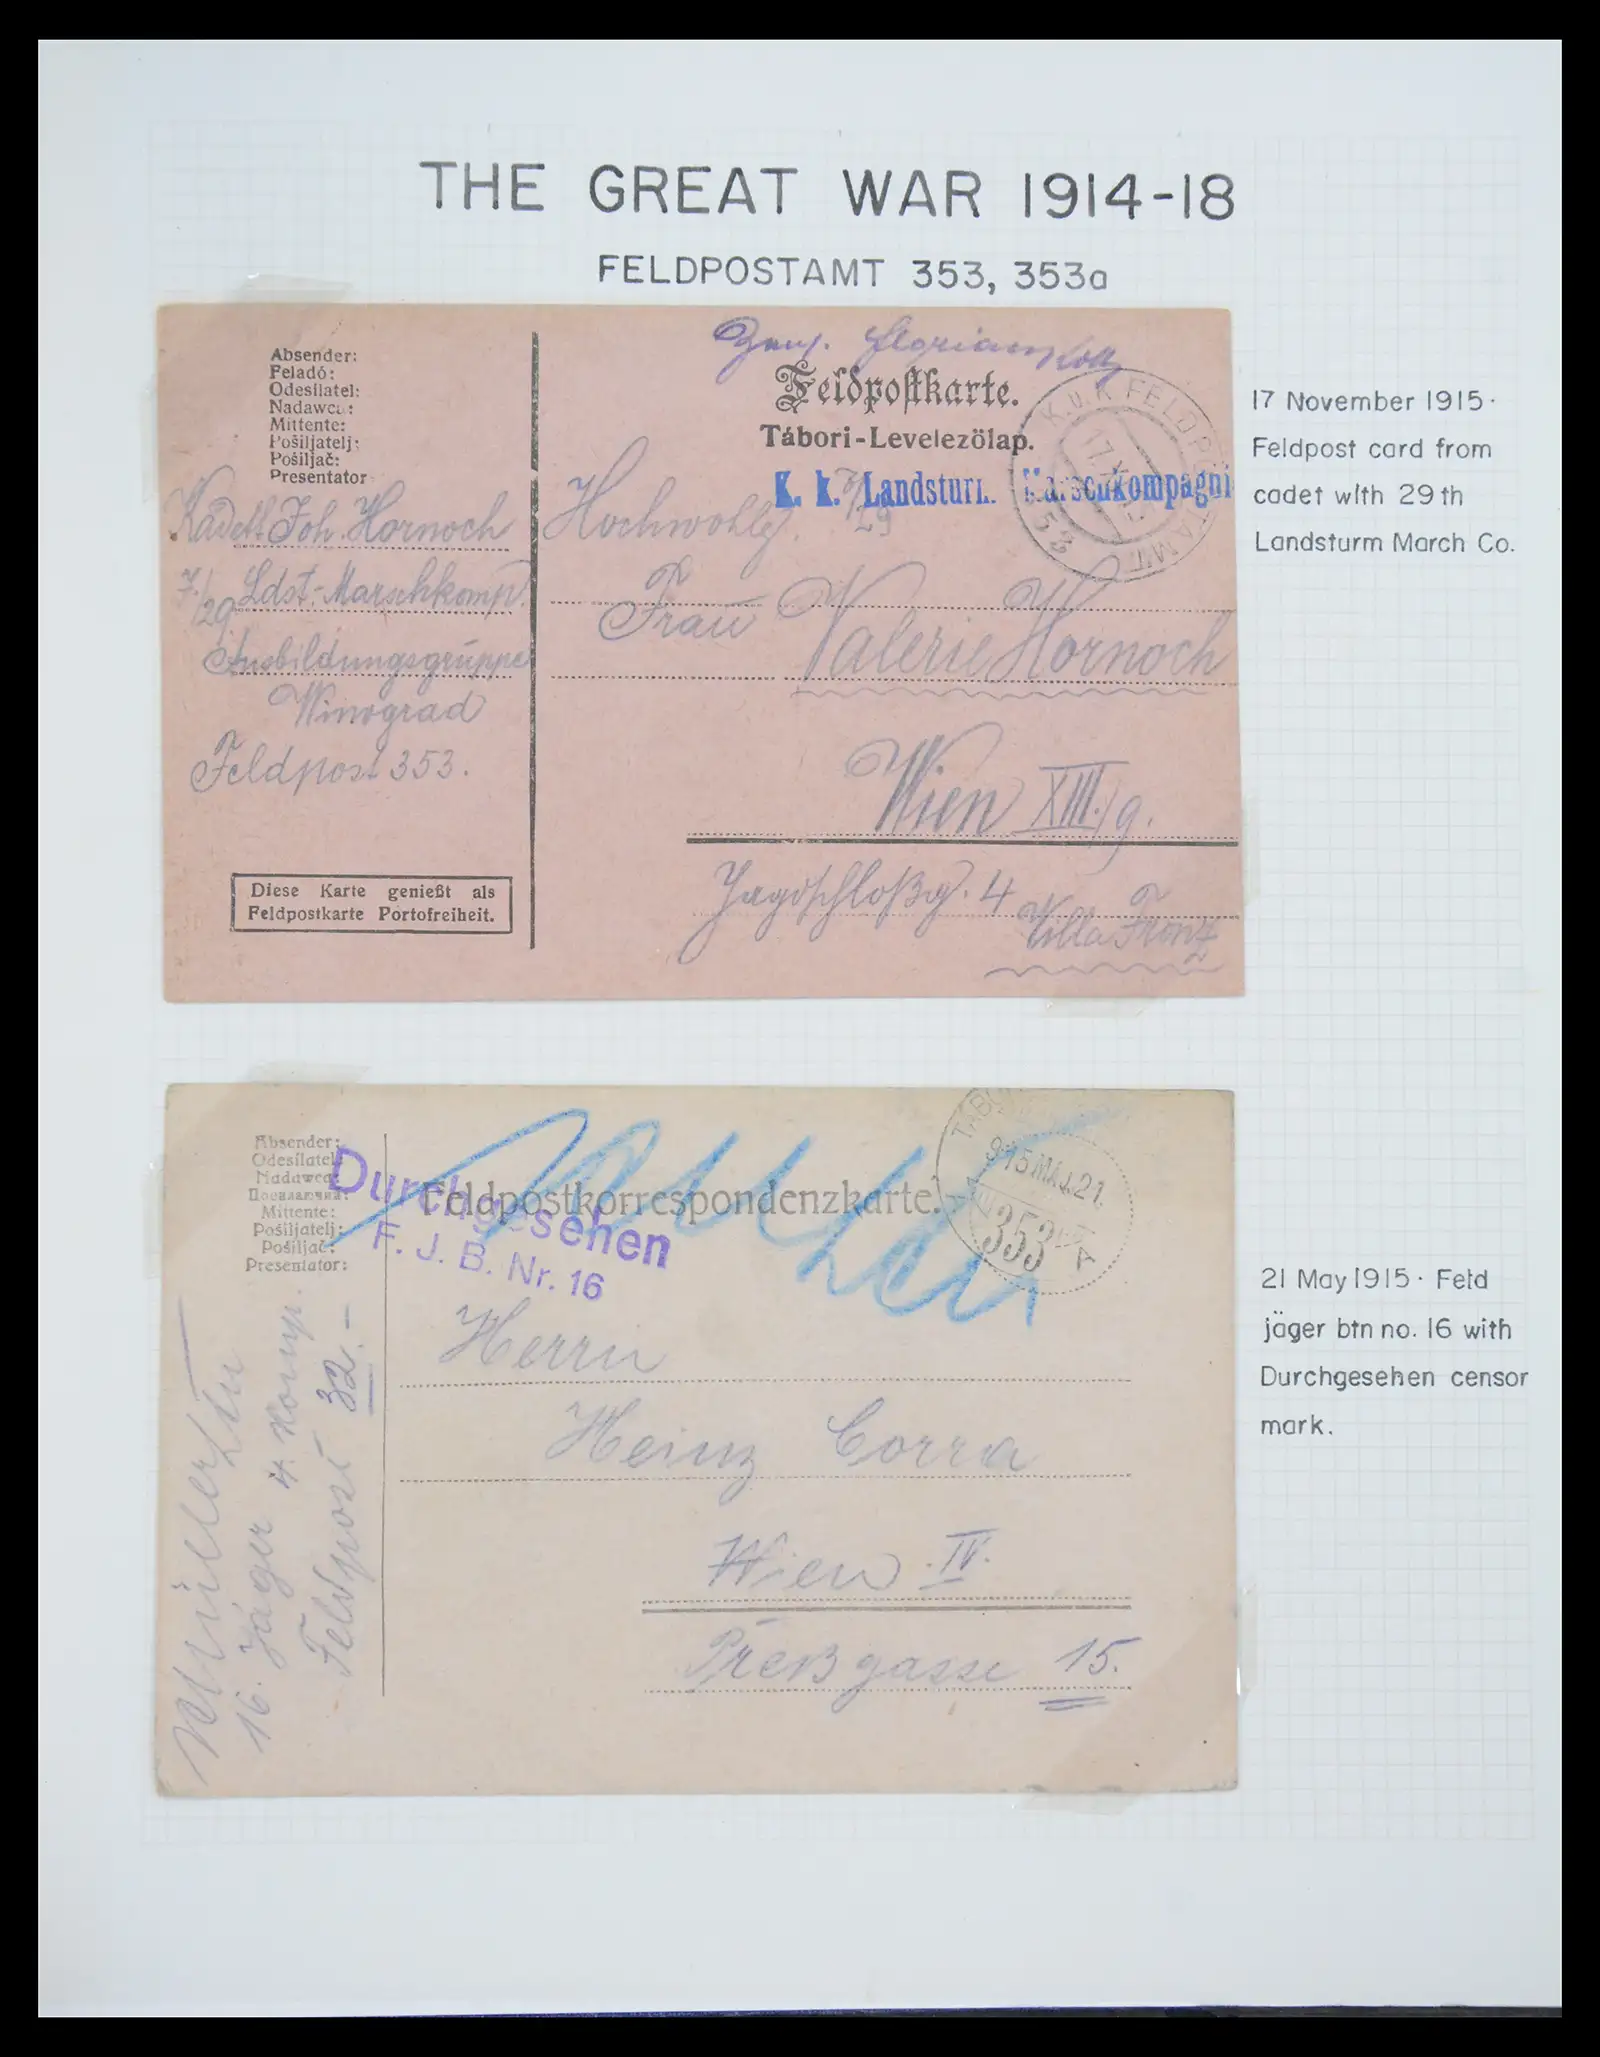 THE GREAT WAR 1914-18
FELDPOSTAMT 353, 353a
Absender:
Feladó:
Odesílatel:
Nadawca:
Mittente:
Pošiljatelj:
Pošiljač:
Presentator
Kadett Joh. Hornoch
7./29 Ldst.-Marschkomp.
Ausbildungsgruppe
Winograd
Feldpost 353.
Diese Karte genießt als
Feldpostkarte Portofreiheit.
Feldpostkarte.
Tábori-Levelezölap.
K. k. Landsturm Marschkompagni
K.u.K FELDPOSTAMT
353
Hochwohlg.
Frau Valerie Hornoch
Wien XIII./9.
Jagdschloßg. 4
Villa Franz
17 November 1915.
Feldpost card from
cadet with 29th
Landsturm March Co.
Absender:
Odesílatel:
Nadawca:
Mittente:
Pošiljatelj:
Pošiljač:
Presentator:
16. Jäger 4. Komp.
Feldpost 32.-
Durchgesehen
F. J. B. Nr. 16
Feldpostkorrespondenzkarte.
915 MAJ. 21.
353
A
Herrn
Heinz Corra
Wien IV.
Preßgasse 15.
21 May 1915. Feld
jäger btn no. 16 with
Durchgesehen censor
mark.